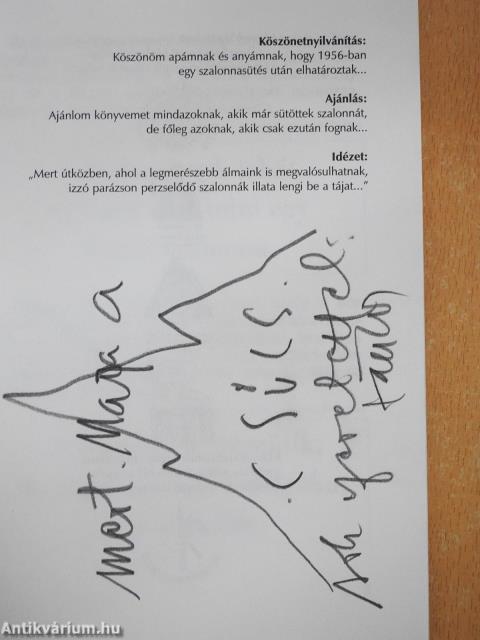 Köszönetnyilvánítás:
Köszönöm apámnak és anyámnak, hogy 1956-ban
egy szalonnasütés után elhatároztak...
Ajánlás:
Ajánlom könyvemet mindazoknak, akik már sütöttek szalonnát,
de főleg azoknak, akik csak ezután fognak...
Idézet:
„Mert útközben, ahol a legmerészebb álmaink is megvalósulhatnak,
izzó parázson perzselődő szalonnák illata lengi be a tájat...”
mert. Mára a
csúcs.
sok szeretettel:
Antikvárium.hu